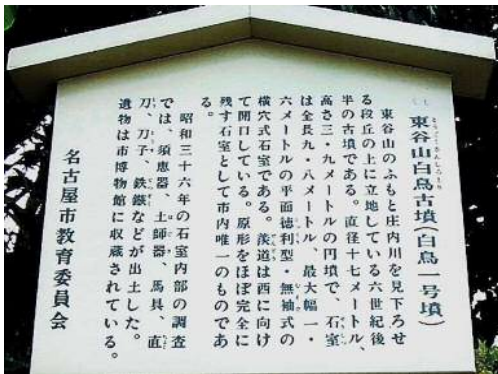 東谷山白鳥古墳(白鳥一号墳)
東谷山のふもと庄内川を見下ろせ
る段丘の上に立地している六世紀後
半の古墳である。直径十七メートル、
高さ三・九メートルの円墳で、石室
は全長九・八メートル、最大幅一・
六メートルの平面徳利型・無袖式の
横穴式石室である。羨道は西に向け
て開口している。原形をほぼ完全に
残す石室として市内唯一のものであ
る。
昭和三十六年の石室内部の調査
では、須恵器、土師器、馬具、直
刀、刀子、鉄鏃などが出土した。
遺物は市博物館に収蔵されている。
名古屋市教育委員会